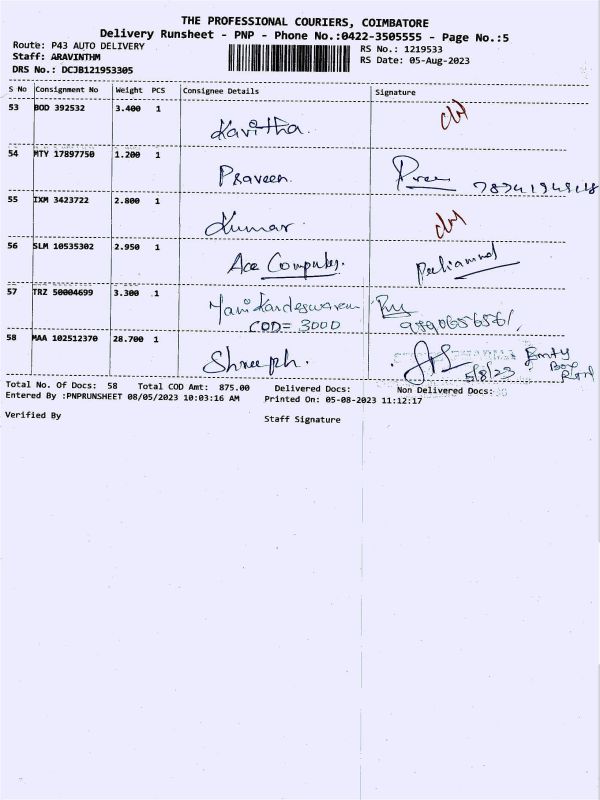 THE PROFESSIONAL COURIERS, COIMBATORE
Delivery Runsheet - PNP - Phone No.:0422-3505555 - Page No.:5
Route: P43 AUTO DELIVERY RS No.: 1219533
Staff: ARAVINTHM RS Date: 05-Aug-2023
DRS No.: DCJB121953305
S No Consignment No Weight PCS Consignee Details Signature
53 BOD 392532 3.400 1
Kavitha.
54 MTY 17897750 1.200 1
Praveen.
55 IXM 3423722 2.800 1
Kumar
56 SLM 10535302 2.950 1
Ace Computer.
57 TRZ 50004699 3.300 1
COD= 3000
58 MAA 102512370 28.700 1
5/8/23
Total No. Of Docs: 58 Total COD Amt: 875.00 Delivered Docs: Non Delivered Docs:
Entered By :PNPRUNSHEET 08/05/2023 10:03:16 AM Printed On: 05-08-2023 11:12:17
Verified By Staff Signature